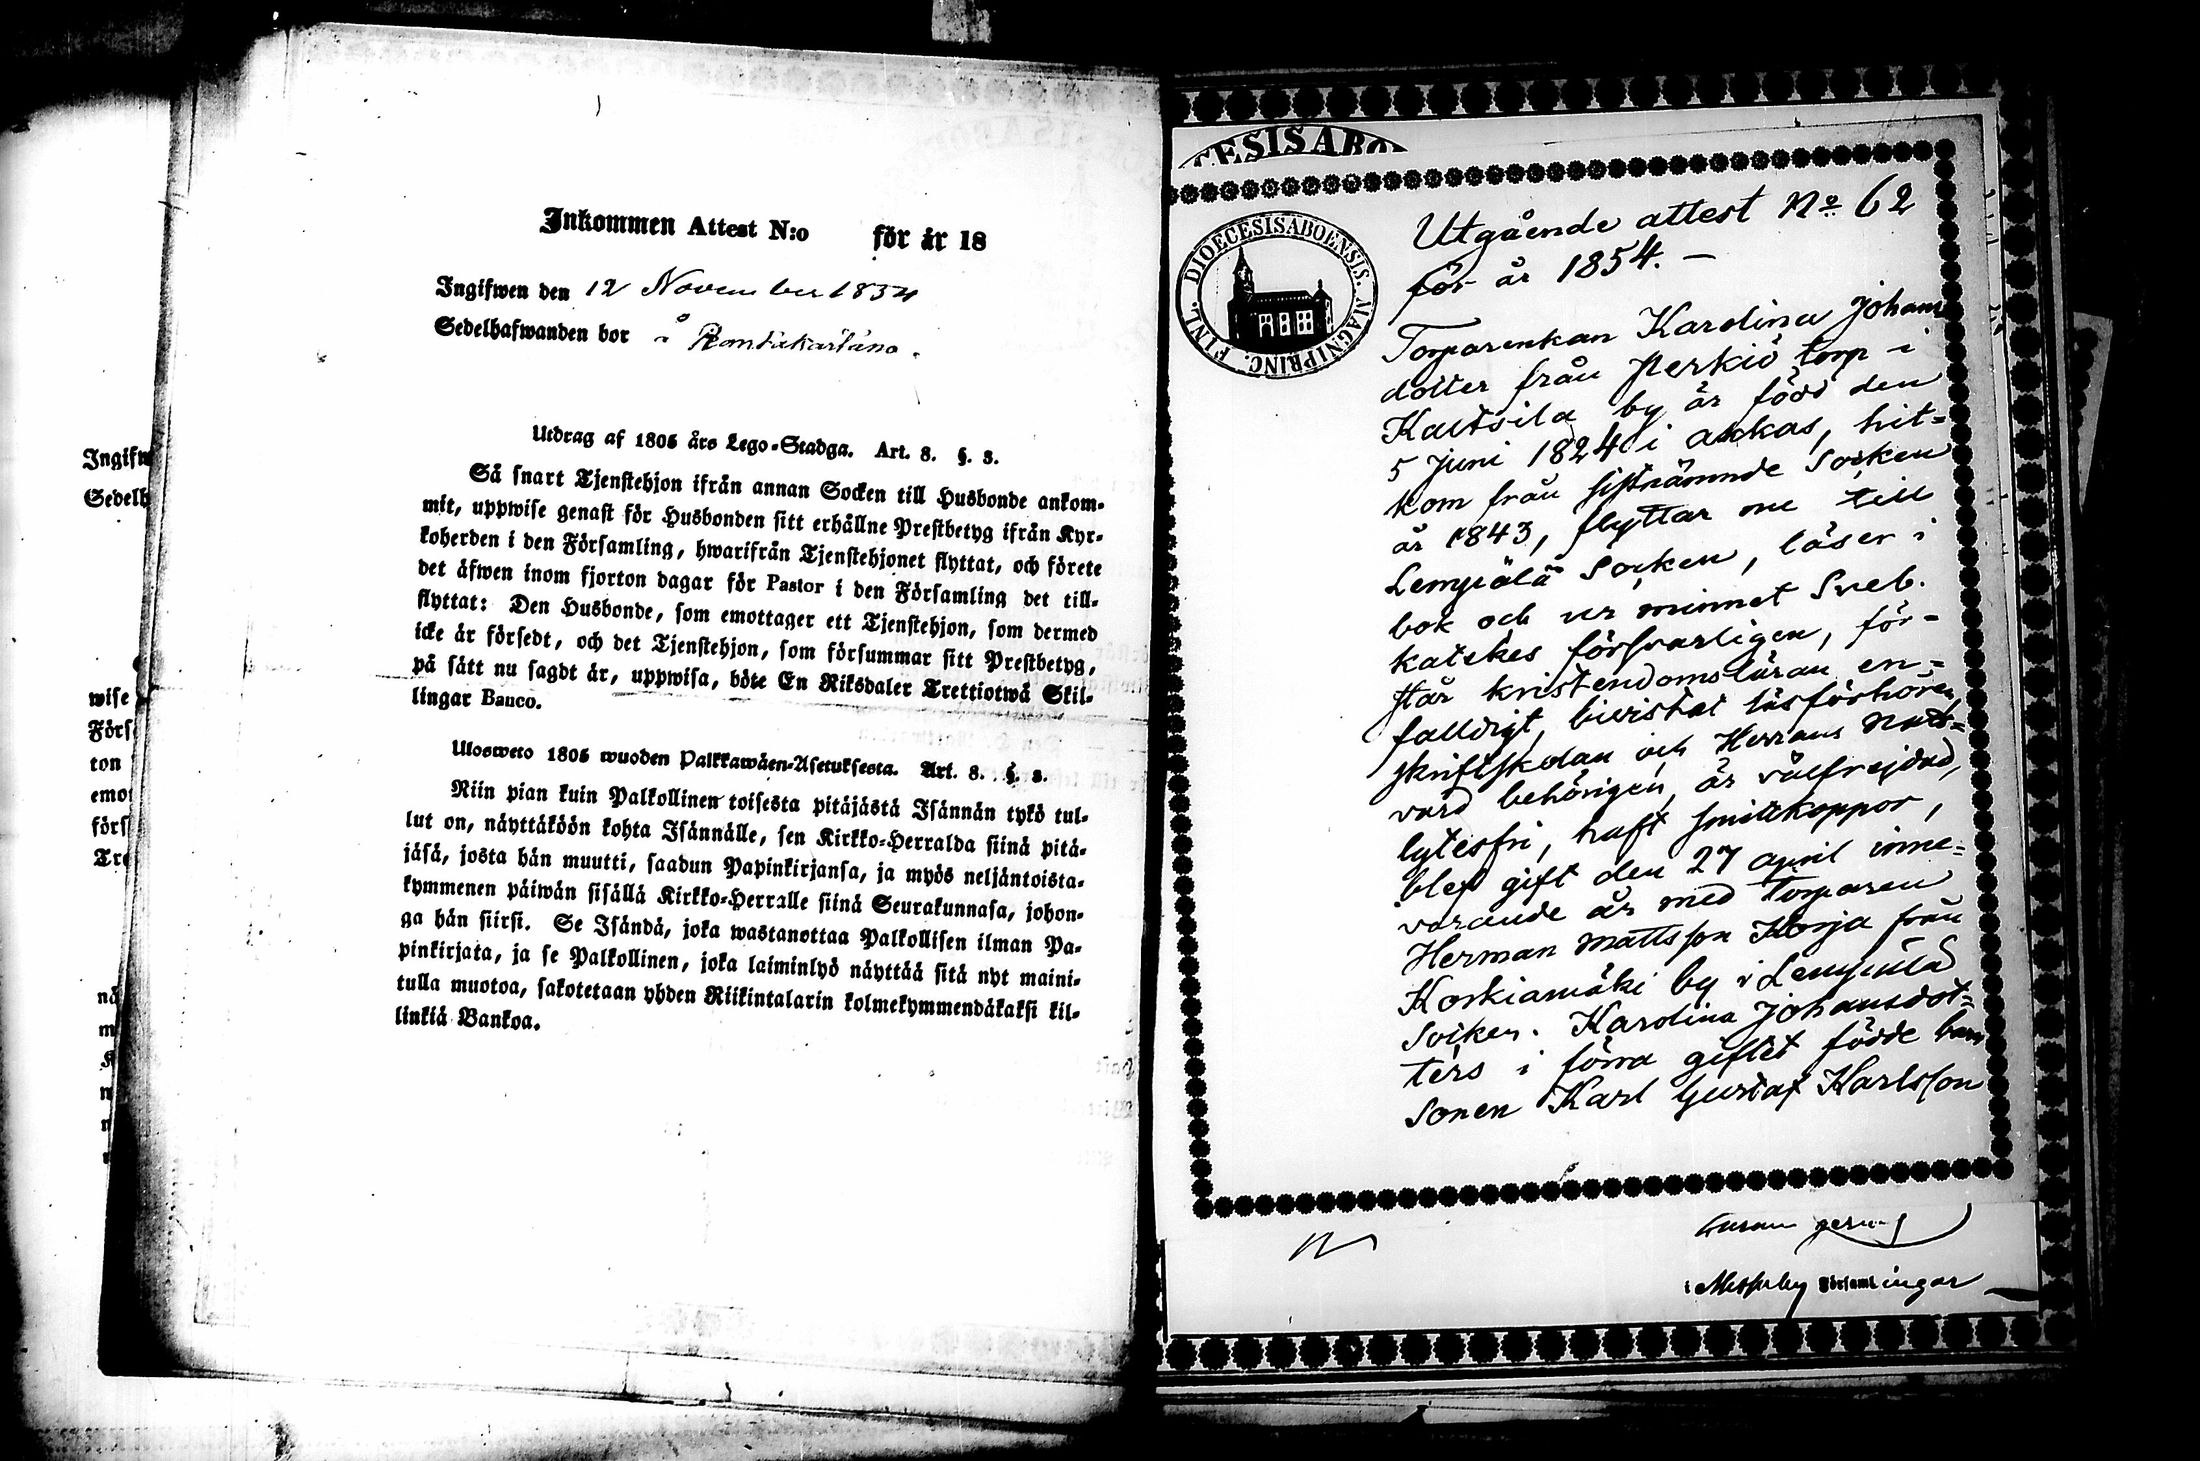 Inkommen Attest N:o för år 18
Ingifwen den 12 November 1854
Sedelhafwanden bor å Rantakartano.
Utdrag af 1805 års Lego-Stadga. Art. 8. §. 3.
Så snart Tjenstehjon ifrån annan Socken till Husbonde ankom-
mit, uppwise genast för Husbonden sitt erhållne Prestbetyg ifrån Kyr-
koherden i den Församling, hwarifrån Tjenstehjonet flyttat, och förete
det äfwen inom fjorton dagar för Pastor i den Församling det till-
flyttat: Den Husbonde, som emottager ett Tjenstehjon, som dermed
icke är försedt, och det Tjenstehjon, som försummar sitt Prestbetyg,
på sätt nu sagdt är, uppwisa, böte En Riksdaler Trettiotwå Skil-
lingar Banco.
Ulosweto 1805 wuoden Palkkawäen-Asetuksesta. Art. 8. §. 3.
Niin pian kuin Palkollinen toisesta pitäjästä Isännän tykö tul-
lut on, näyttäköön kohta Isännälle, sen Kirkko-Herralda siinä pitä-
jäsä, josta hän muutti, saadun Papinkirjansa, ja myös neljäntoista-
kymmenen päiwän sisällä Kirkko-Herralle siinä Seurakunnasa, johon-
ga hän siirsi. Se Isändä, joka wastanottaa Palkollisen ilman Pa-
pinkirjata, ja se Palkollinen, joka laiminlyö näyttää sitä nyt maini-
tulla muotoa, sakotetaan yhden Riikintalarin kolmekymmendäkaksi kil-
linkiä Bankoa.
Ingifw
Sedelh
wise
Förs
ton
emo
förs
Tre
CESIS ABO
FINL. DIOECESIS ABOENSIS. MAGNI PRINC.
Utgående attest No 62
för år 1854. —
Torparenkan Karolina Johans
dotter från Perkiö torp i
Kaitsila by är född den
5 Juni 1824 i Akkas, hit-
kom från sistnämnde Socken
år 1843, flyttar nu till
Lempälä Socken, läser i
bok och ur minnet Sveb.
katekes försvarligen, för-
står kristendomsläran en-
falldigt, bivistat läsförhören,
skriftskolan och Herrans natt-
vard behörigen, är välfrejdad,
lytesfri, haft smittkoppor,
blef gift den 27 april inne-
varande år med Torparen
Herman Mattsson Korja från
Korkiamäki by i Lempälä
Socken. Karolina Johansdot-
ters i förra giftet födde barn
Sonen Karl Gustaf Karlsson
i Messuby Församlingar